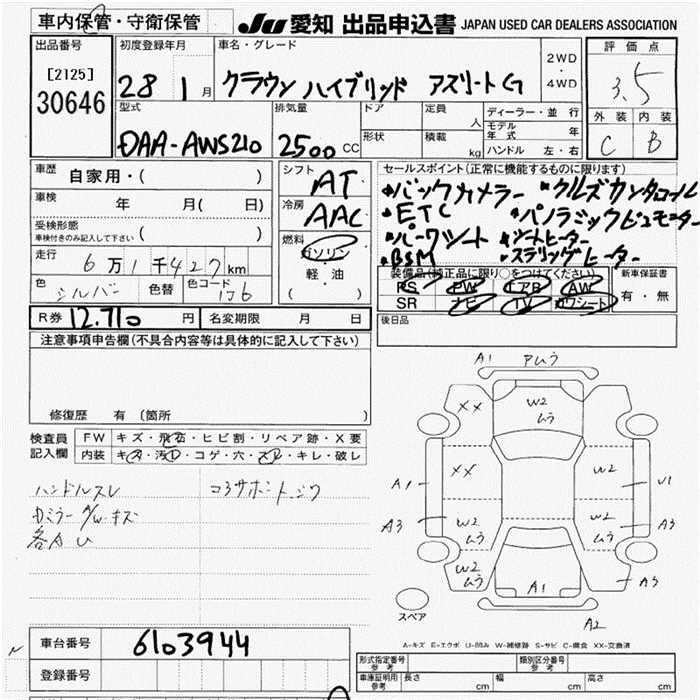 車内保管・守衛保管
JU 愛知 出品申込書 JAPAN USED CAR DEALERS ASSOCIATION
出品番号
[2125]
30646
初度登録年月
28 1 月
車名・グレード
クラウン ハイブリッド アスリートG
2WD
・
4WD
評価点
3.5
外装 内装
C B
型式
DAA-AWS210
排気量
2500 CC
ドア
形状
定員 人
積載 kg
ディーラー・並行
モデル年式 年
ハンドル 左・右
車歴 自家用・( )
車検 年 月( 日)
受検形態
車検付きのみ記入して下さい ( )
走行
6万1千427km
色 シルバー 色替 色コード 1J6
シフト
AT
冷房
AAC
燃料
ガソリン
・
軽・油
( )
セールスポイント(正常に機能するものに限ります)
・バックカメラー ・クルズカンタロール
・ETC ・パノラミックビュモーター
・パーワシート ・シートヒーター
・BSM ・ステリングヒーター
装備品(補正品に限り○をつけてください)
PS PW エアB AW
SR ナビ TV カワシート
新車保証書
有・無
R券 12,710 円 名変期限 月 日
後日品
注意事項申告欄(不具合内容等は具体的に記入して下さい)
修復歴 有 (箇所 )
検査員記入欄
FW キズ・飛石・ヒビ割・リペア跡・X要
内装 キズ・汚れ・コゲ・穴・スレ・キレ・破レ
ハンドルスレ コラサポートシワ
カミラー キズ
各AU
A1 Pムラ
XX
W2
ムラ
XX
W2
A1
U1
A3
W2
ムラ
W2
ムラ
A3
W2
ムラ
A1
A3
A2
スペア
A-キズ E-エクボ U-凹み W-補修跡 S-サビ C-腐食 XX-交換済
車台番号 6103944
登録番号
形式指定番号
参考
類別区分番号
参考
車庫証明用
参考
長さ cm 幅 cm 高さ cm